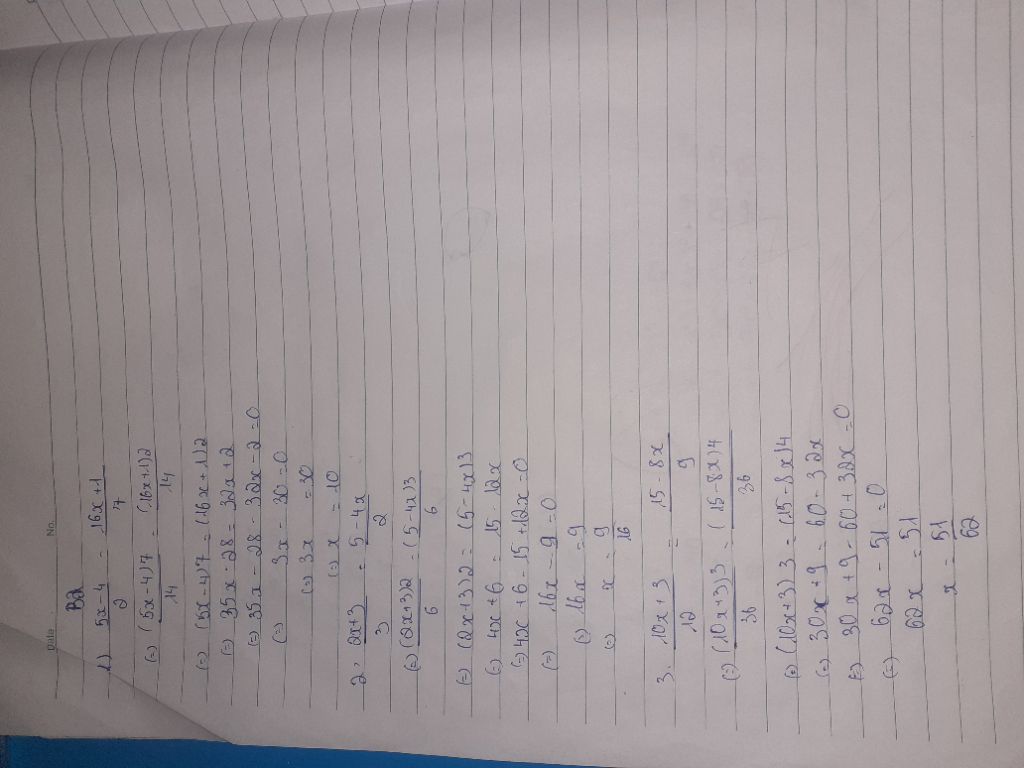 Date No.
B2
1) 5x-4/2 = 16x+1/7
(=) (5x-4)7/14 = (16x+1)2/14
(=) (5x-4)7 = (16x+1)2
(=) 35x-28 = 32x+2
(=) 35x-28-32x-2=0
(=) 3x-30=0
(=) 3x =30
(=) x =10
2. 2x+3/3 = 5-4x/2
(=) (2x+3)2/6 = (5-4x)3/6
(=) (2x+3)2 = (5-4x)3
(=) 4x+6 = 15-12x
(=) 4x+6-15+12x=0
(=) 16x-9=0
(=) 16x =9
(=) x = 9/16
3. 10x+3/12 = 15-8x/9
(=) (10x+3)3/36 = (15-8x)4/36
(=) (10x+3)3 = (15-8x)4
(=) 30x+9 = 60-32x
(=) 30x+9-60+32x=0
(=) 62x-51=0
62x = 51
x = 51/62